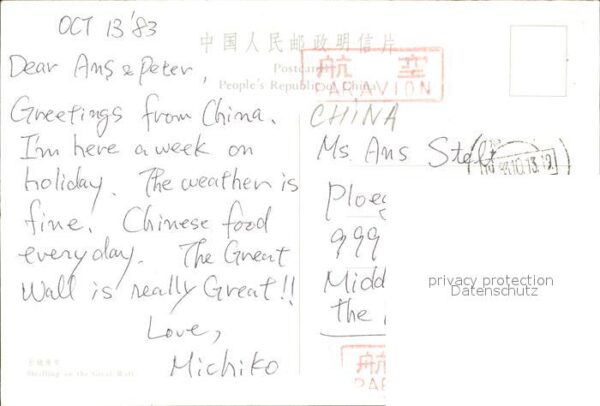 OCT 13 '83
中国人民邮政明信片
Postcard
People's Republic of China
航 空
PAR AVION
Dear Ans & Peter,
Greetings from China.
I'm here a week on
holiday. The weather is
fine. Chinese food
everyday. The Great
Wall is really Great!!
Love,
Michiko
CHINA
Ms Ans
Ploeg
999
Midd
the
privacy protection
Datenschutz
航
PAR
Strolling on the Great Wall